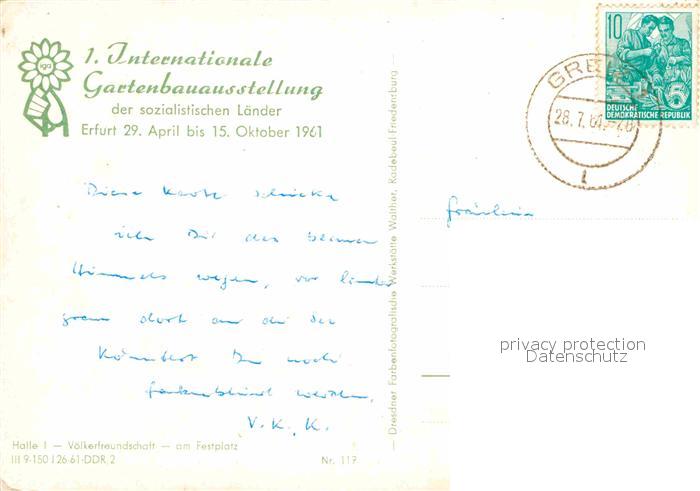 iga
1. Internationale
Gartenbauausstellung
der sozialistischen Länder
Erfurt 29. April bis 15. Oktober 1961
Diese Karte schicke
ich Dir des blauen
Himmels wegen, vor lauter
grau dort an der See
könntest Du noch
farbenblind werden.
V. K. K.
Halle I — Völkerfreundschaft — am Festplatz
III 9-150 J 26 61-DDR 2
Nr. 117
— Dresdner Farbenfotografische Werkstätte Walther, Radebeul Friedensburg
10
DEUTSCHE
DEMOKRATISCHE REPUBLIK
28.7.61
Fräulein
privacy protection
Datenschutz